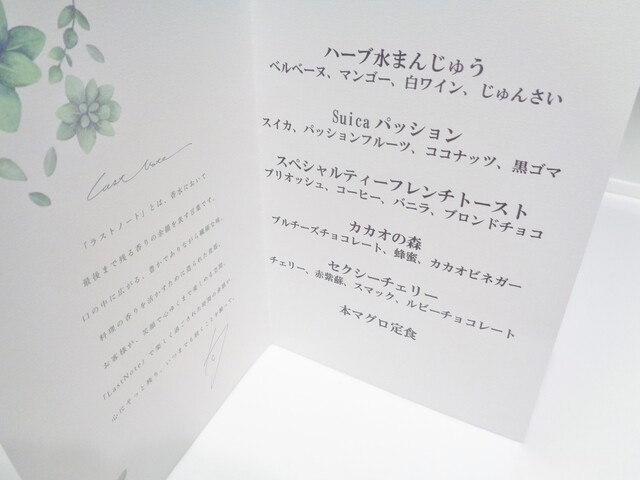 Last Note
「ラストノート」とは、香水において
最後まで残る香りの余韻を表す言葉です。
口の中に広がる、豊かでありながら繊細な味。
料理の香りを活かすために造られた食器。
お客様が、笑顔で心ゆくまで楽しめる空間。
「LastNote」で楽しく過ごされた時間の余韻が、
心にそっと残り、いつまでも続くことを願って。
ハーブ水まんじゅう
ベルベーヌ、マンゴー、白ワイン、じゅんさい
Suicaパッション
スイカ、パッションフルーツ、ココナッツ、黒ゴマ
スペシャルティーフレンチトースト
ブリオッシュ、コーヒー、バニラ、ブロンドチョコ
カカオの森
ブルチーズチョコレート、蜂蜜、カカオビネガー
セクシーチェリー
チェリー、赤紫蘇、スマック、ルビーチョコレート
本マグロ定食